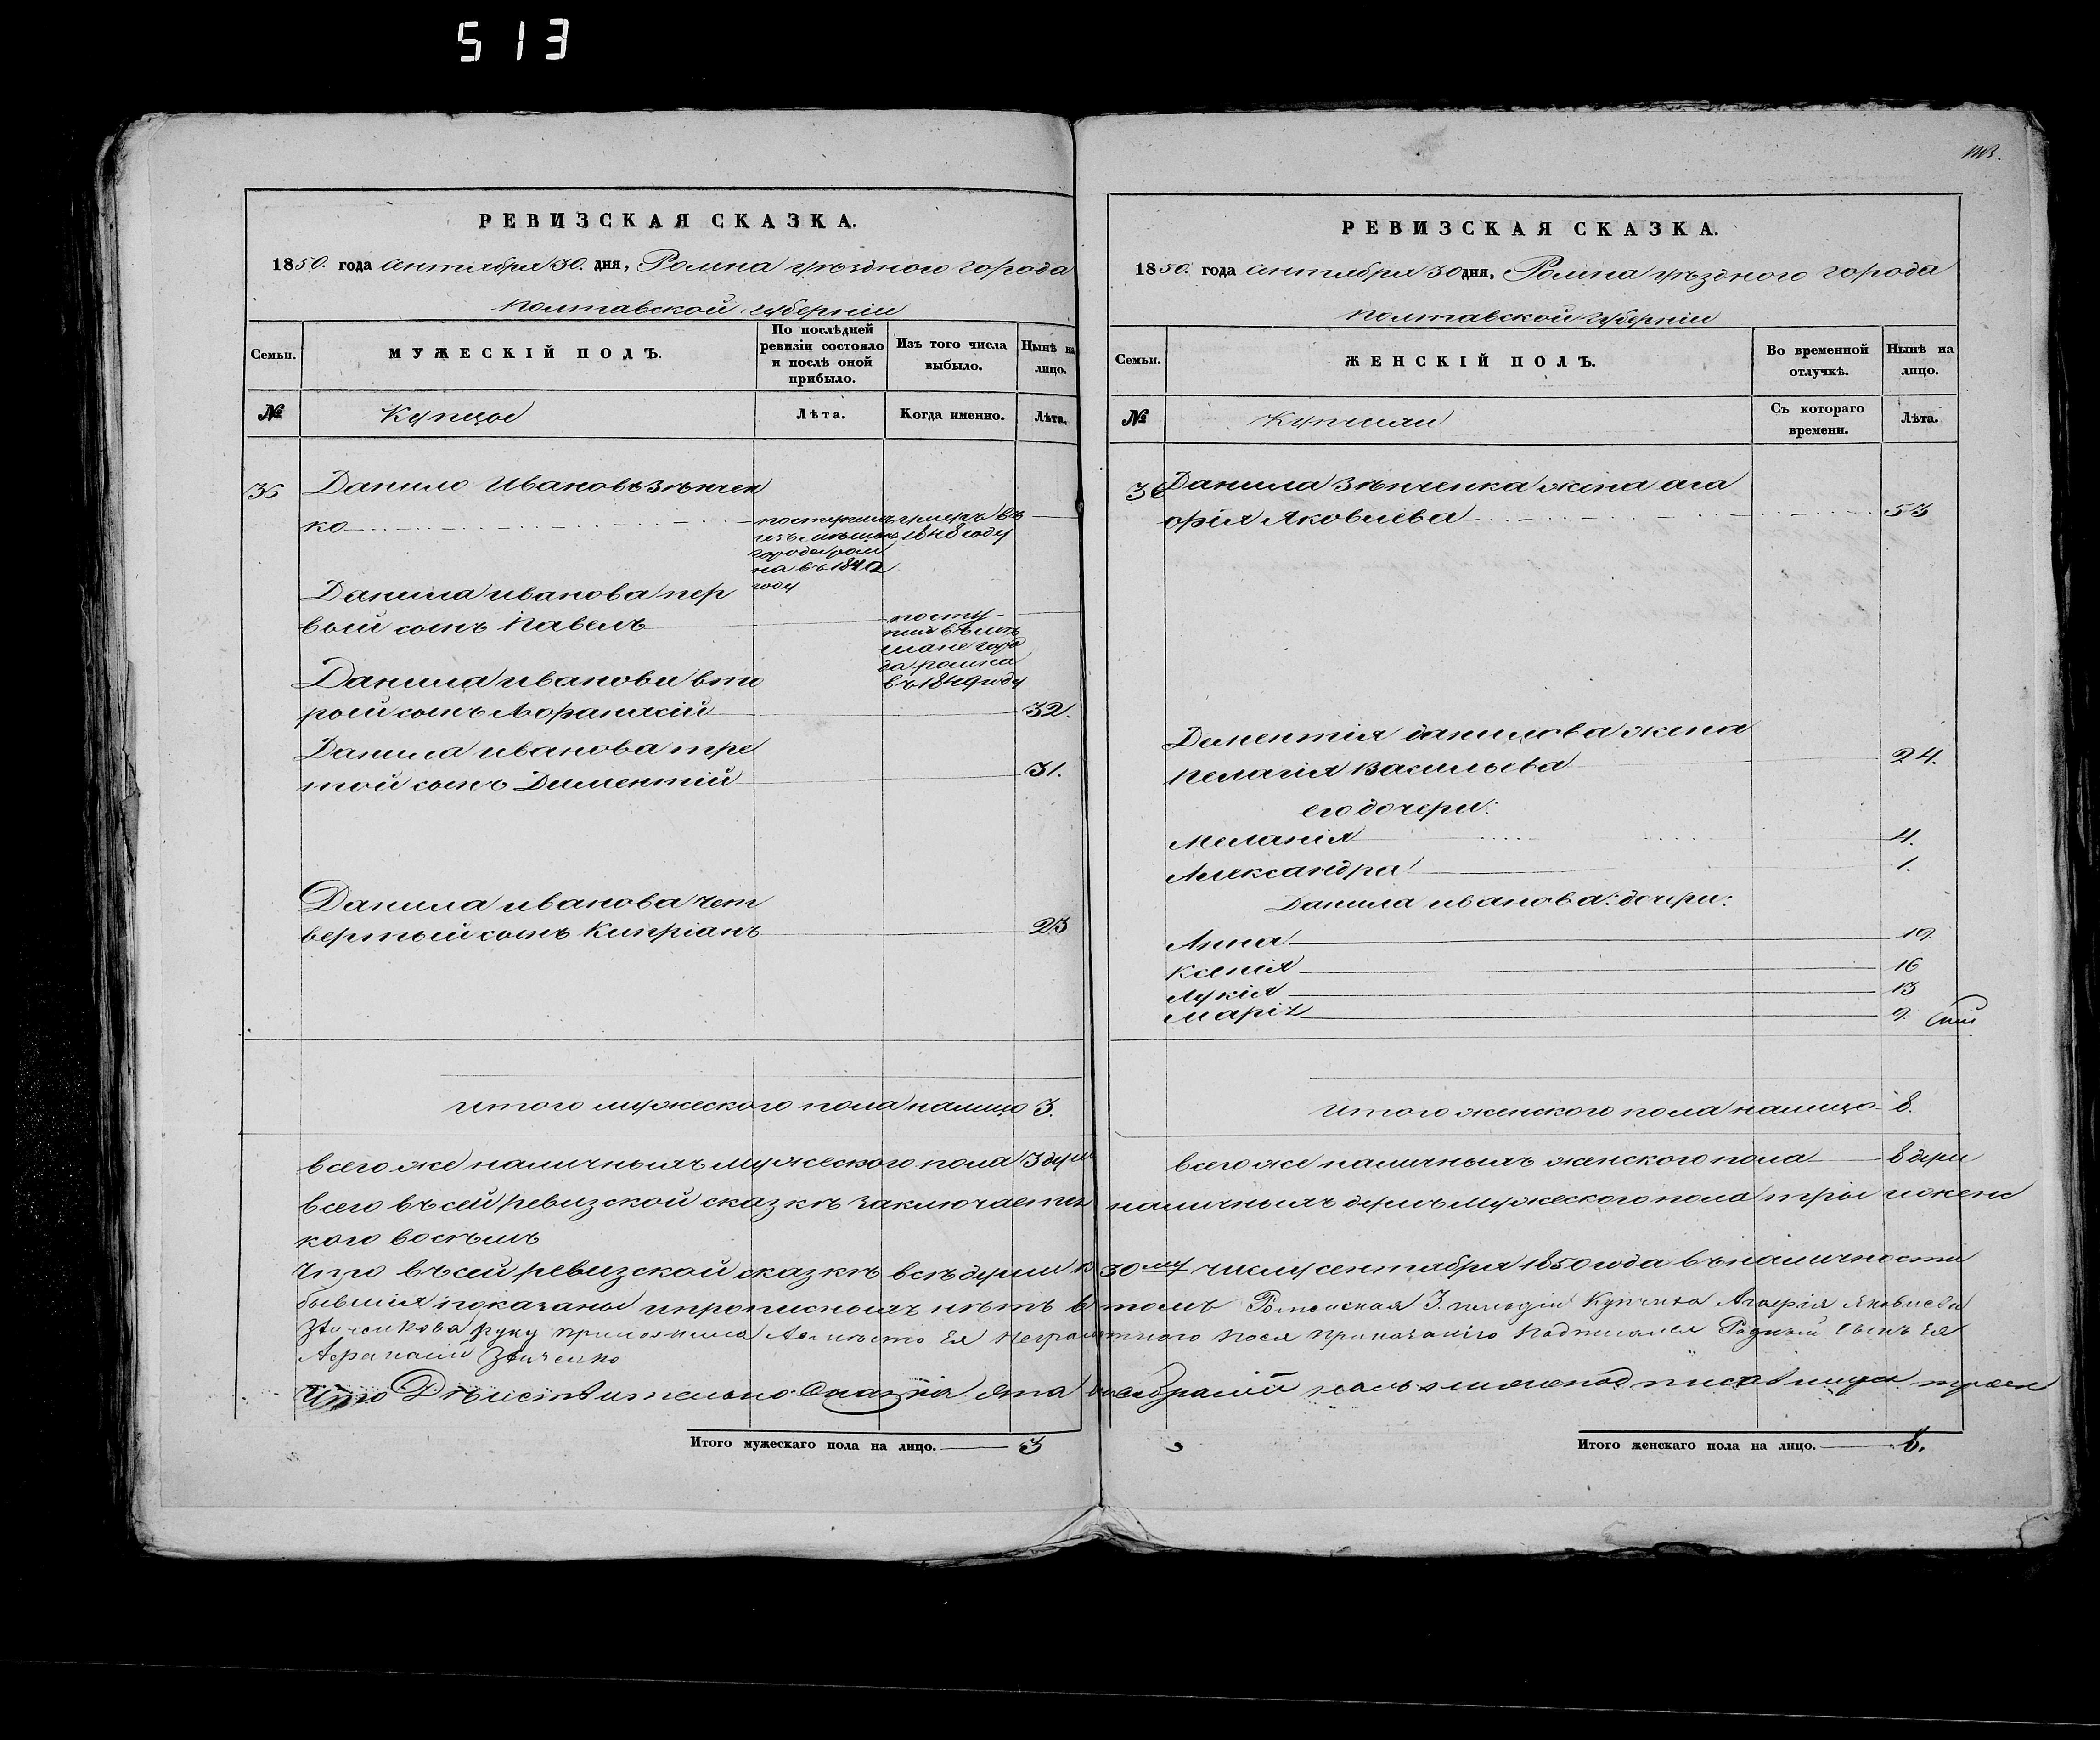 513
РЕВИЗСКАЯ СКАЗКА.
1850. года сентября 30. дня, Ромна уѣздного города
Полтавской губерніи
Семьи.
МУЖЕСКІЙ ПОЛЪ.
По послѣдней ревизіи состояло и послѣ оной прибыло.
Изъ того числа выбыло.
Нынѣ на лицо.
№
Купцы
Лѣта.
Когда именно.
Лѣта.
36
Данило Ивановъ Зѣнчен
ко
поступилъ
изъ мѣщанъ
города ром
на въ 1840
году
умеръ въ
1848 году
Данила иванова пер
вый сынъ Павелъ
посту
пил въ мѣ
щане горо
да ромна
въ 1849 году
Данила иванова вто
рой сынъ Афанасій 32.
Данила иванова тре
той сынъ Дементій 31.
Данила иванова чет
вертый сынъ Кипріанъ 23
итого мужеского пола налицо 3.
всего же наличныхъ мужеского пола 3 души
РЕВИЗСКАЯ СКАЗКА.
1850. года сентября 30 дня, Ромна уѣздного города
Полтавской губерніи
Семьи.
ЖЕНСКІЙ ПОЛЪ.
Во временной отлучкѣ.
Нынѣ на лицо.
№
Съ котораго времени.
Лѣта.
36
Данила Зѣнченка жена ага
фрія Яковлева 53
Дементія данилова жена
пелагія Васильева 24.
его дочери:
Меланія 4.
Александра 1.
Данила иванова: дочери:
Анна 19.
Ксенія 16
Лукія 13
Марія 9.
итого женского пола налицо 8.
всего же наличныхъ женского пола 8 души
всего въ сей ревизской сказкѣ заключается наличныхъ душъ мужеского пола три и женс
кого восѣмъ
Что въ сей ревизской сказкѣ всѣ души к 30му числу сентября 1850 года въ наличности
бывшія показаны и прописныхъ нѣтъ в томъ Роменская 3. гильдіи Купчиха Агафія Яковлева
Зѣнченкова руку приложила а вмѣсто Ея неграмотного подписался Родный Сынъ Ея
Афанасій Зѣнченко
Что Дѣйствительно Сказка эта
Итого мужескаго пола на лицо. 3
Итого женскаго пола на лицо. 8.